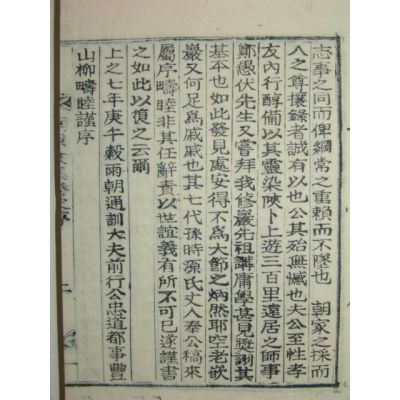 志事之同而俾綱常之重賴而不墜也　朝家之採而
人之尊攘錄者誠有以也公其殆無憾也夫公至性孝
友內行醇備以其靈染陜卜上遊三百里遠居之師事
鄭愚伏先生又嘗拜我修巖先祖講庸學甚見奬詡其
基本也如此發見處安得不爲大節之炳然耶空老嵌
巖又何足爲戚戚也其七代孫時源氏丈人奏公稿來
屬序疇睦非其任辭責以世誼義有所不可已遂謹書
之如此以復之云爾
上之七年庚午穀雨朝通訓大夫前行公忠道都事豐
山柳疇睦謹序